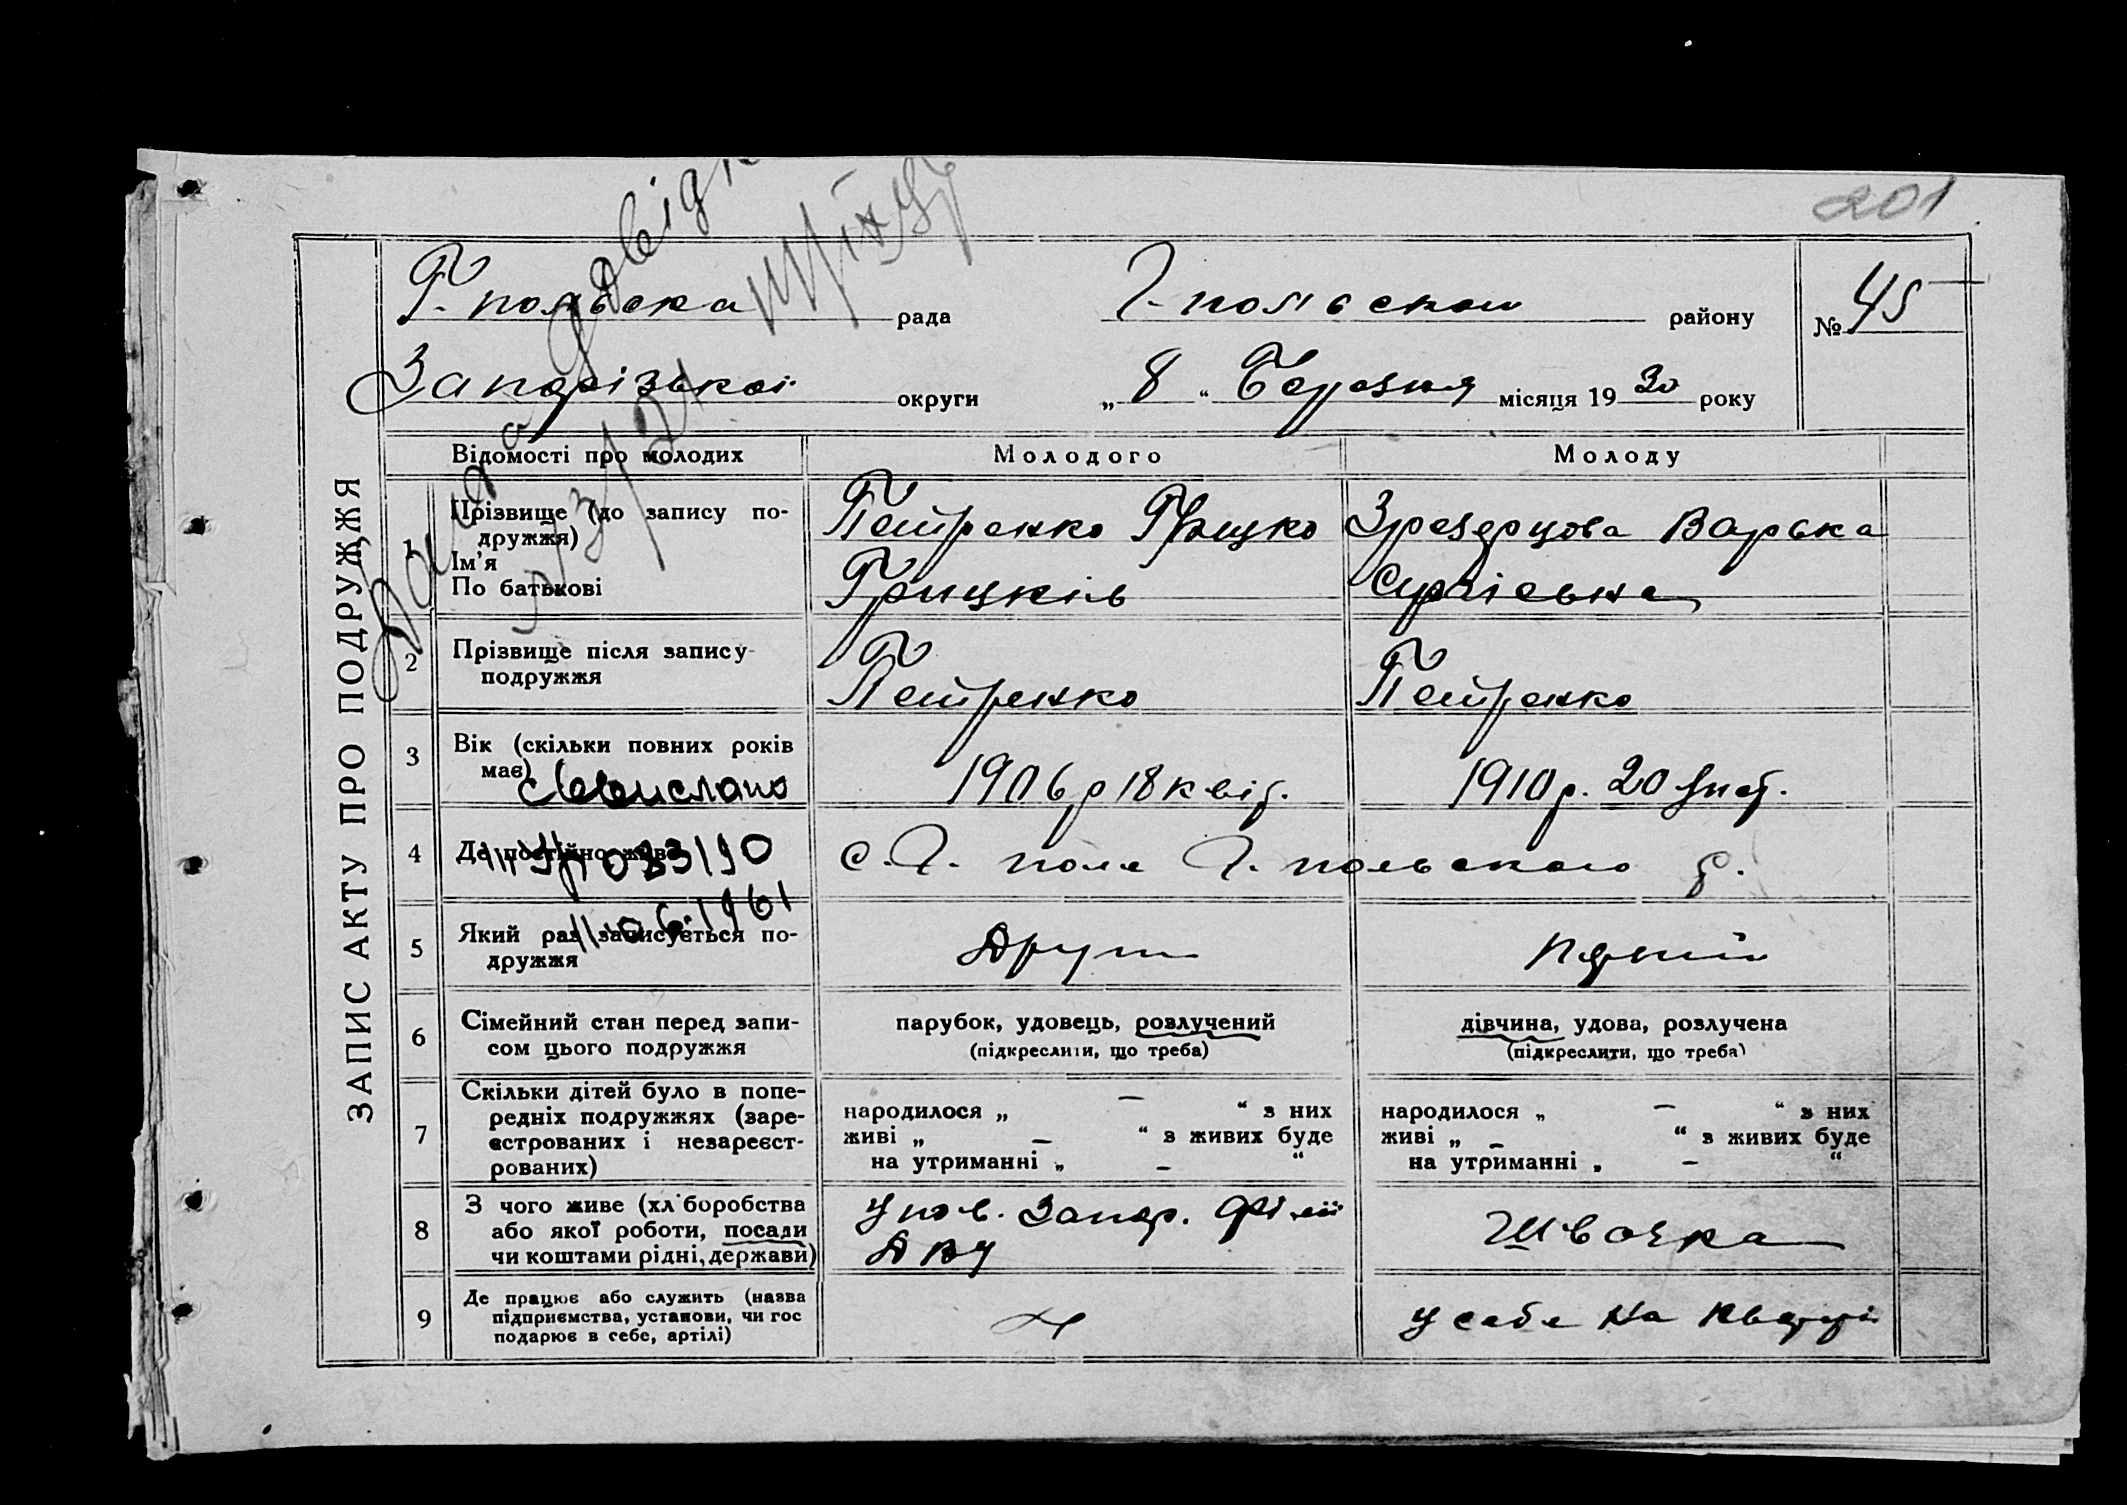 201
Г. польська рада Г-польском району № 45
Запорізької округи „ 8 “ Березня місяця 19 30 року
ЗАПИС АКТУ ПРО ПОДРУЖЖЯ
Відомості про молодих Молодого Молоду
1 Прізвище (до запису по-
дружжя) Петренко Грицко Варька
Ім’я
По батькові Грицків Сергієвна
2 Прізвище після запису
подружжя Петренко Петренко
3 Вік (скільки повних років
має) 1906 р 18 квіт. 1910 р. 20 лист.
4 Де постійно живе с. Г. поле Г. польского р.
083190
11.06.1961
5 Який раз записується по-
дружжя Други Перший
6 Сімейний стан перед запи-
сом цього подружжя
парубок, удовець, розлучений
(підкреслити, що треба)
дівчина, удова, розлучена
(підкреслити, що треба)
7 Скільки дітей було в попе-
редніх подружжях (заре-
єстрованих і незареєст-
рованих)
народилося „ — “ з них
живі „ — “ з живих буде
на утриманні „ — “
народилося „ — “ з них
живі „ — “ з живих буде
на утриманні „ — “
8 З чого живе (хліборобства
або якої роботи, посади
чи коштами рідні, держави)
Упов. Запор. Філії
ДВУ
Швачка
9 Де працює або служить (назва
підприємства, установи, чи гос
подарює в себе, артілі)
у себе на кварті